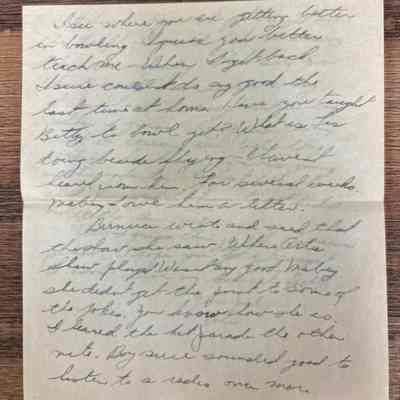 I see where you are getting better
in bowling. I guess you better
teach me when I get back.
I sure couldn't do any good the
last time at home. Have you taught
Betty to bowl yet? What is
doing beside flying - I haven't
heard from him for several weeks.
Maybe I owe him a letter.
Bernice wrote and said that
the show she saw where
show plays wasn't any good. Maybe
she didn't get the point to some of
the jokes. You know how she is.
I heard the hit parade the other
nite. Boy sure sounded good to
listen to a radio once more.